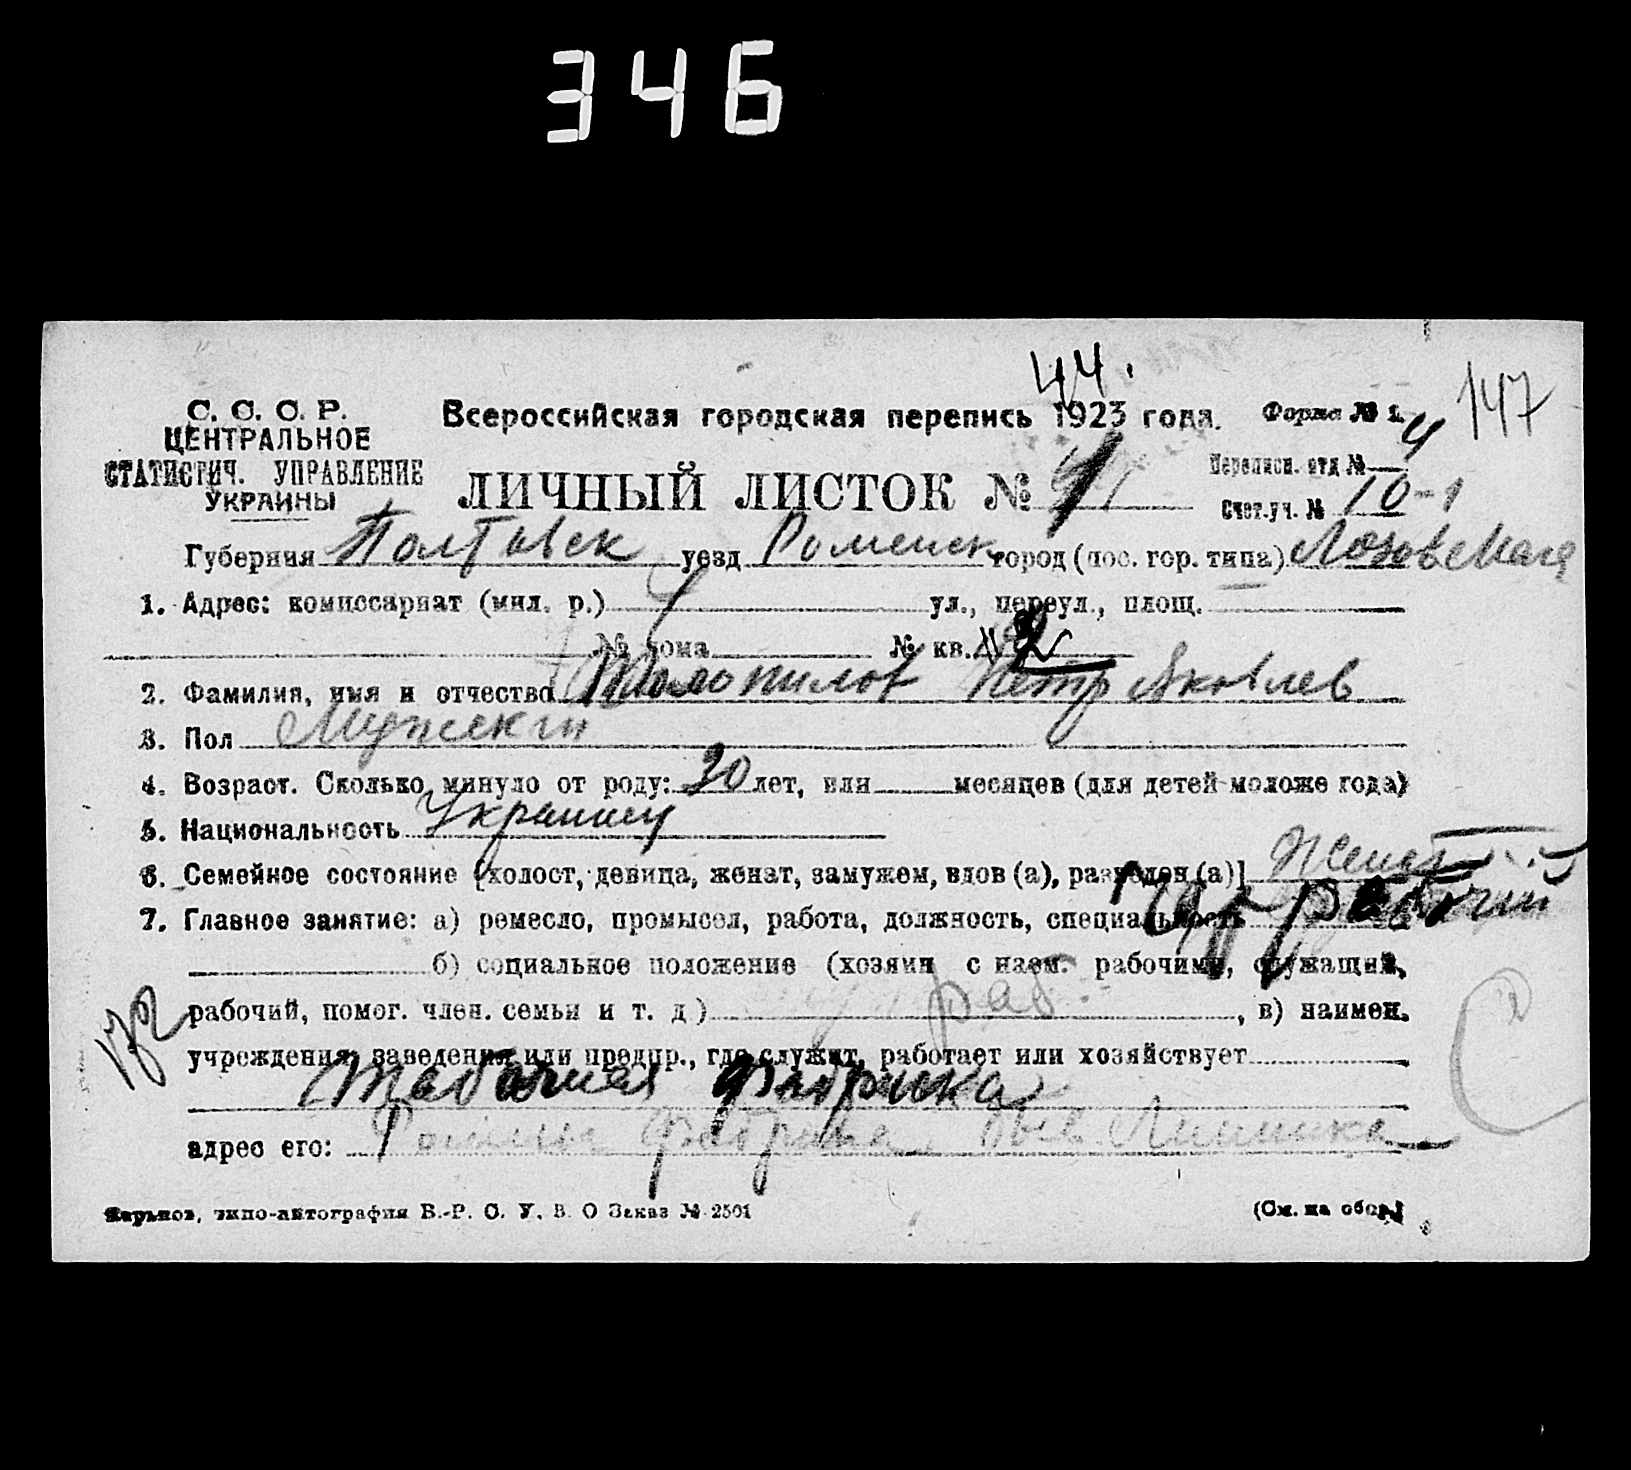 346
44.
С. С. С. Р.
ЦЕНТРАЛЬНОЕ
СТАТИСТИЧ. УПРАВЛЕНИЕ
УКРАИНЫ
Всероссийская городская перепись 1923 года.
Форма № 1.
147
ЛИЧНЫЙ ЛИСТОК №
Переписн. отд № 4
Счет. уч. № 10-1
Губерния Полтовск уезд Роменск город (пос. гор. типа)
1. Адрес: комиссариат (мил. р.) ул., переул., площ.
№ дома № кв. 2
2. Фамилия, имя и отчество Петр Яковлев
3. Пол Мужскии
4. Возраст. Сколько минуло от роду: лет, или месяцев (для детей моложе года)
5. Национальность Украинец
6. Семейное состояние [холост, девица, женат, замужем, вдов (а), разведен (а)] Женат
7. Главное занятие: а) ремесло, промысел, работа, должность, специальность рабочий
б) социальное положение (хозяин с наем. рабочими, служащий,
рабочий, помог. член. семьи и т. д) раб , в) наимен.
172
учреждения, заведения или предпр., где служит, работает или хозяйствует
Табачная фабрика
адрес его: Ромны фабрика, быв.
Харьков, типо-литография В.-Р. С. У. В. О Заказ № 2501
(См. на обор.)